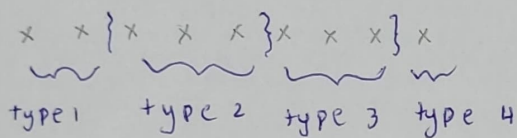 x x } x x x } x x x } x
type 1 type 2 type 3 type 4